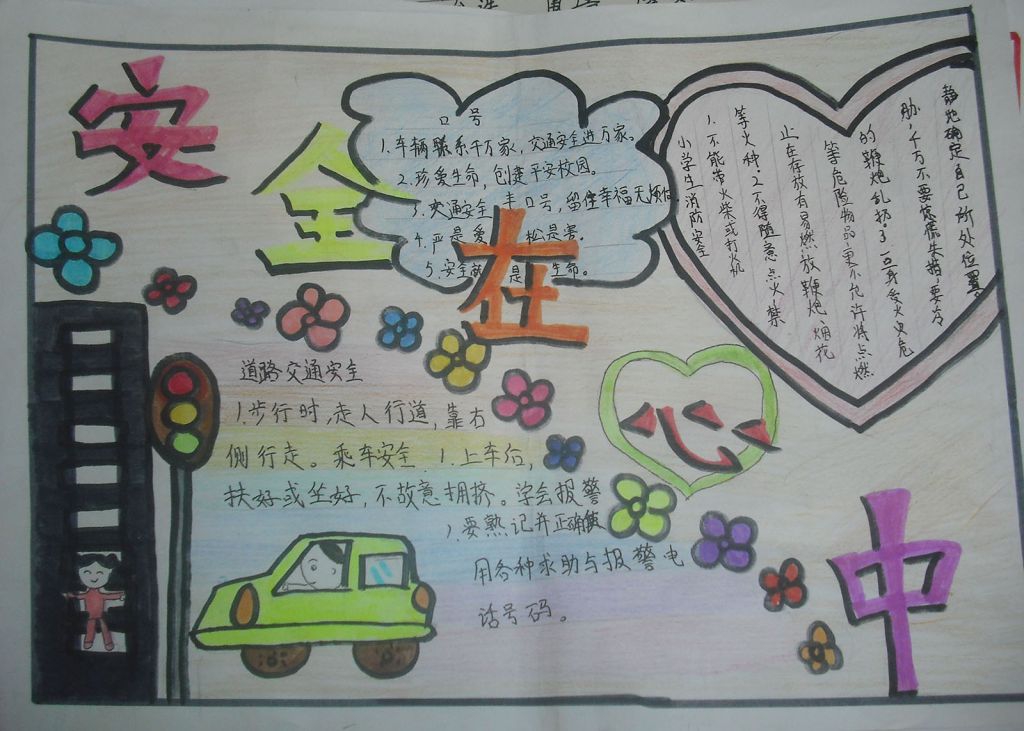 安全在心中
口号
1.车辆联系千万家,交通安全进万家。
2.珍爱生命,创建平安校园。
3.交通安全 口号,留住幸福无烦恼。
4.严是爱 松是害。
5.安全 是 生命。
小学生消防安全
1.不能带火柴或打火机
等火种.2不得随意点火禁
止在存放有易燃放鞭炮.烟花
等危险物品更不允许将点燃
的鞭炮乱扔.3. 身受火灾危
胁,千万不要惊慌失措要冷
静地确定自己所处位置。
道路交通安全
1.步行时,走人行道,靠右
侧行走。乘车安全.1.上车后,
扶好或坐好,不故意拥挤。学会报警
1.要熟记并正确
用各种求助与报警电
话号码。